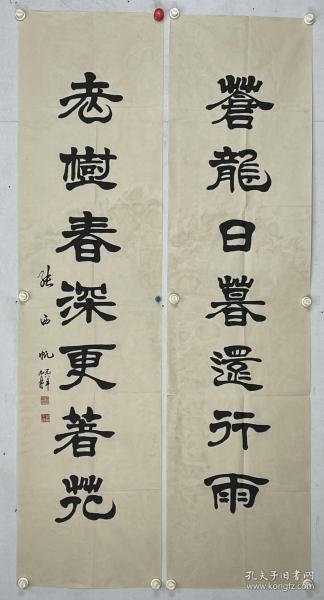 蒼龍日暮還行雨
老樹春深更著花
張西帆
孔夫子旧书网
www.kongfz.com